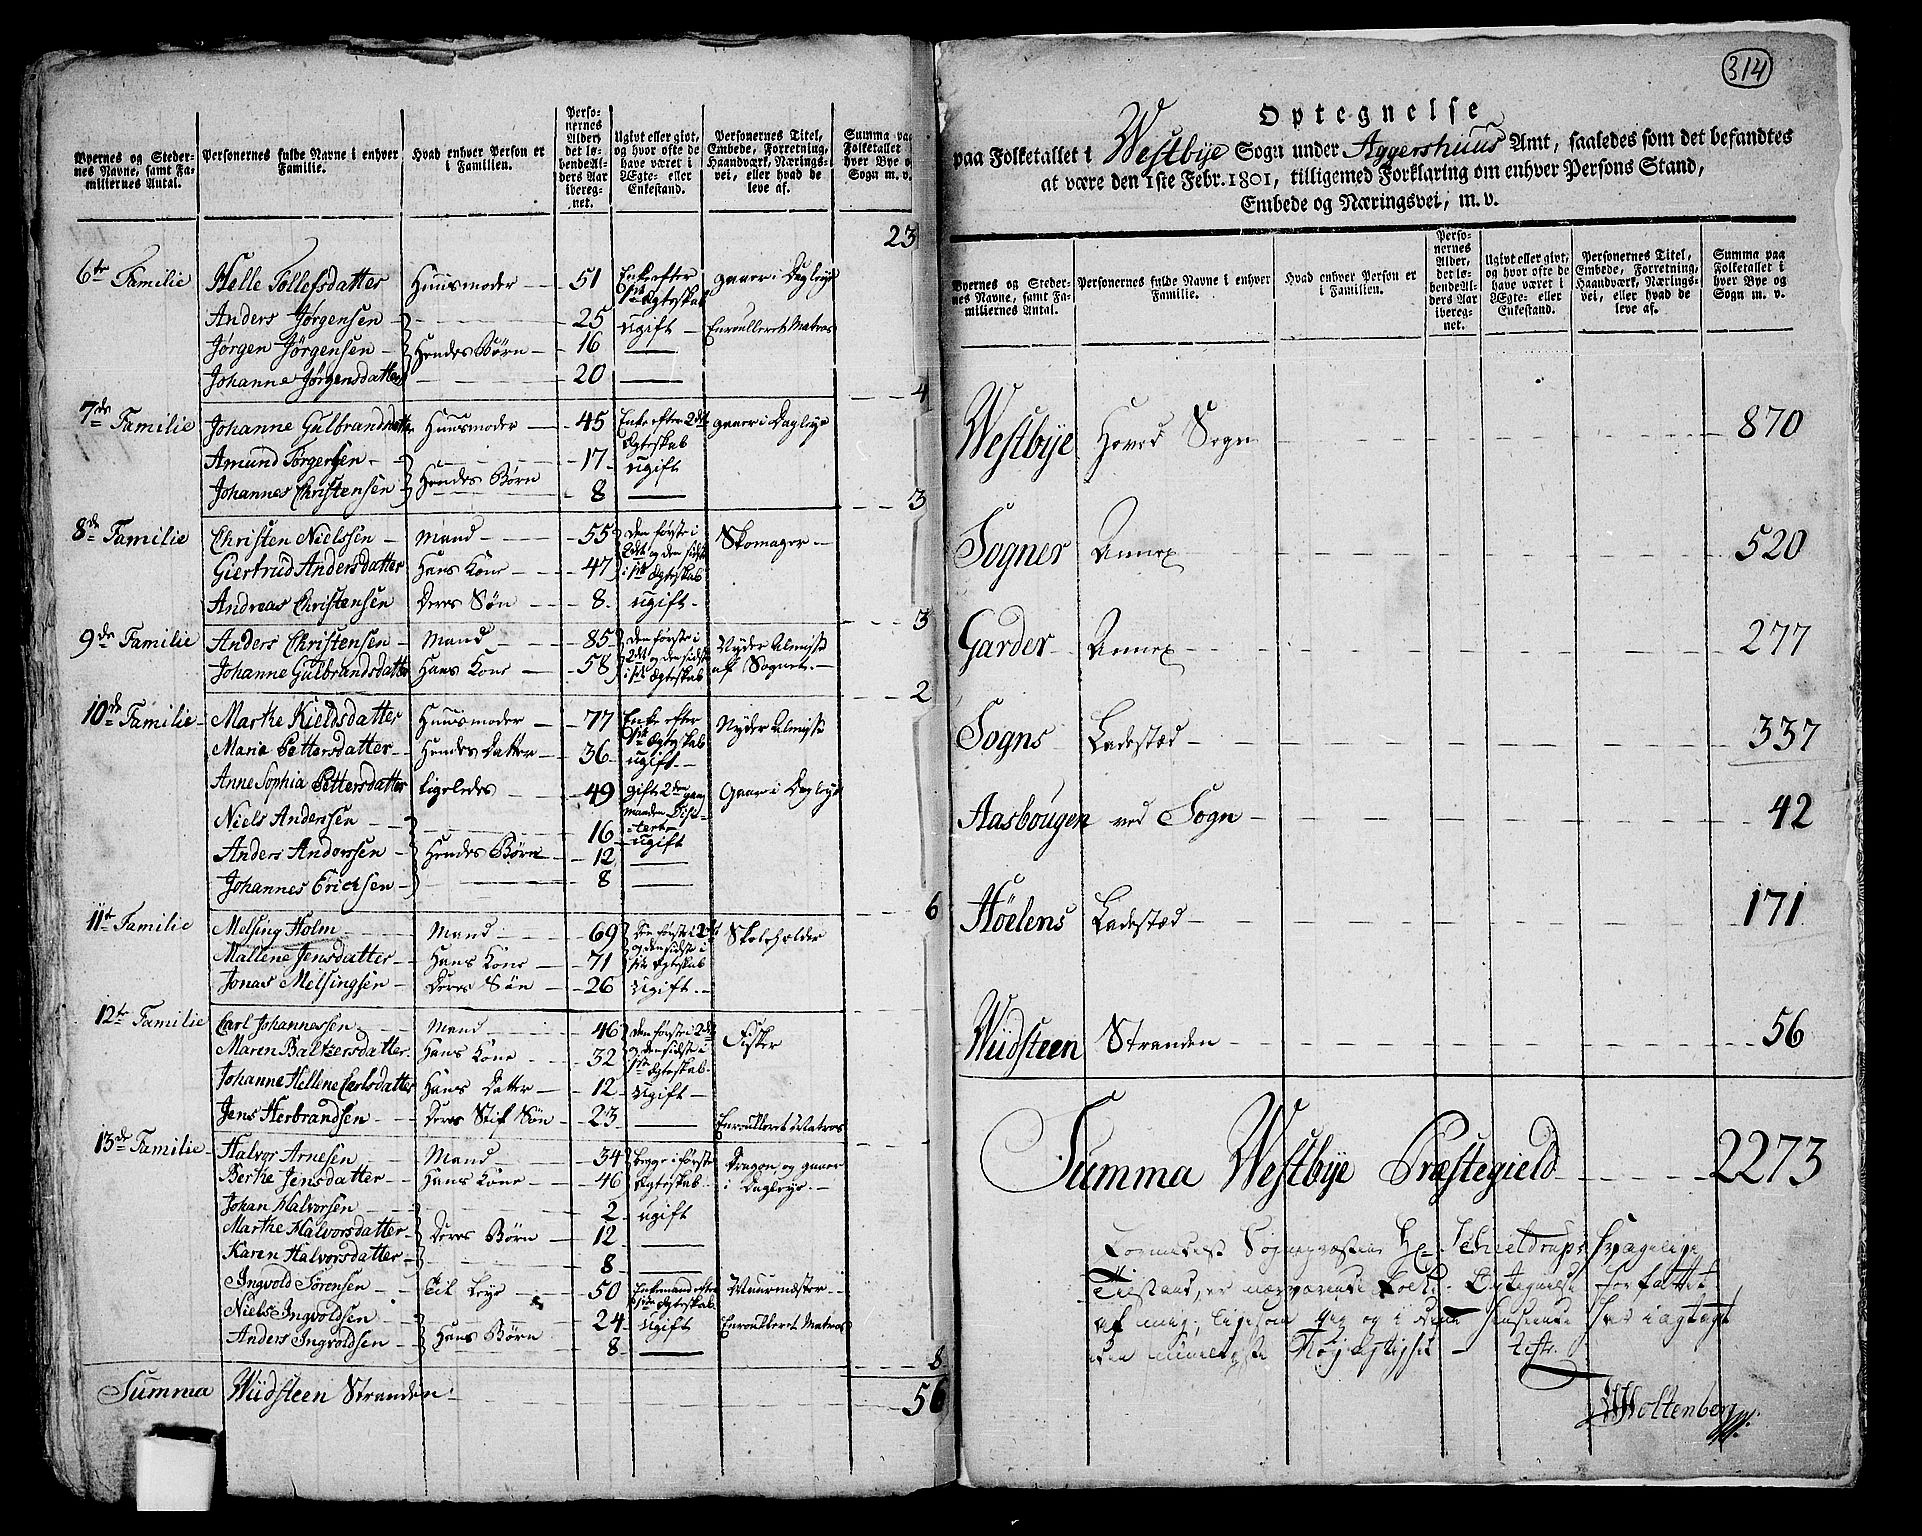 Byernes og Stedernes Navne, samt Familiernes Antal.
Personernes fulde Navne i enhver Familie.
Hvad enhver Person er i Familien.
Personernes Alder, det løbende Alders Aar iberegnet.
Ugivt eller givt, og hvor ofte de have været i Ægte- eller Enkestand.
Personernes Titel, Embede, Forretning, Haandværk, Næringsvei, eller hvad de leve af.
Summa paa Folketallet i hver Bye og Sogn m. v.
23
6te Familie Helle Tollefsdatter Huusmoder 51 Enke efter 1ste Ægteskab gaaer i Dagleye
Anders Jørgensen 25 ugift Enroulleret Matros
Jørgen Jørgensen Hendes Børn 16
Johanne Jørgensdatter 20
4
7de Familie Johanne Gulbrandsdatter Huusmoder 45 Enke efter 2det Ægteskab gaaer i Dagleye
Amund Törgersen 17 ugift
Johannes Christensen Hendes Børn 8
3
8de Familie Christen Nielssen Mand 55 Den første i 2det og den sidste Skomager
Giertrud Andersdatter Hans Kone 47 i 1ste Ægteskab
Andreas Christensen Deres Søn 8 ugift
3
9de Familie Anders Christensen Mand 85 Den første i 2det og den sidste Nyder Almisse
Johanne Gulbrandsdatter Hans Kone 58 i 1ste Ægteskab af Sognet
2
10de Familie Marthe Kieldsdatter Huusmoder 77 Enke efter 1ste Ægteskab Nyder Almisse
Marie Pettersdatter Hendes Datter 36 ugift
Anne Sophia Pettersdatter Ligeledes 49 gift 2den gang manden Gaaer i Dagleye
Niels Anderssen 16 ugift
Anders Anderssen Hendes Børn 12
Johannes Ericksen 8
6
11te Familie Melsing Holm Mand 69 Den første i 2det Skoleholder
Mallene Jensdatter Hans Kone 71 og den sidste i 1ste Ægteskab
Jonas Melsingsen Deres Søn 26 Ugift
12te Familie Carl Johannessen Mand 46 Den første i 2det Fisker
Maren Baltzersdatter Hans Kone 32 og den sidste i 1ste Ægteskab
Johanne Hellene Carlsdatter Hans Datter 12 Ugift
Jens Herbrandsen Deres Stif Søn 23 Enroulleret Matros
13de Familie Halvor Arnesen Mand 34 begge i første Dragon og gaaer
Berthe Jensdatter Hans Kone 46 Ægteskab i Dagleye
Johan Halvorsen 2 ugift
Marthe Halvorsdatter Deres Børn 12
Karen Halvorsdatter 8
Ingvold Sörensen Til Leye 50 Enkemand efter 1ste Ægteskab Muurmester
Niels Ingvoldsen 24 Ugift Enroulleret Matros
Anders Ingvoldsen Hans Børn 8
8
Summa Wiidsteen Stranden 56
314
Optegnelse
paa Folketallet i Westbye Sogn under Aggershuus Amt, saaledes som det befandtes
at være den 1ste Febr. 1801, tilligemed Forklaring om enhver Persons Stand,
Embede og Næringsvei, m. v.
Byernes og Stedernes Navne, samt Familiernes Antal.
Personernes fulde Navne i enhver Familie.
Hvad enhver Person er i Familien.
Personernes Alder, det løbende Alders Aar iberegnet.
Ugivt eller givt, og hvor ofte de have været i Ægte- eller Enkestand.
Personernes Titel, Embede, Forretning, Haandværk, Næringsvei, eller hvad de leve af.
Summa paa Folketallet i hver Bye og Sogn m. v.
Westbye Hoved Sogn 870
Sogner Annex 520
Garder Annex 277
Sogns Ladestæd 337
Aasbougen ved Sogn 42
Høelens Ladestæd 171
Wiidsteen Stranden 56
Summa Westbye Præstegield 2273
Formedelst Sognepræsten Hr Schieldrups svagelige
Tilstand, er nærværende Folke-Optegnelse forfattet
af mig; ligesom jeg og i dette Henseende har iagtagt
den nøieligste Nøjagtighed
WHoltenberg